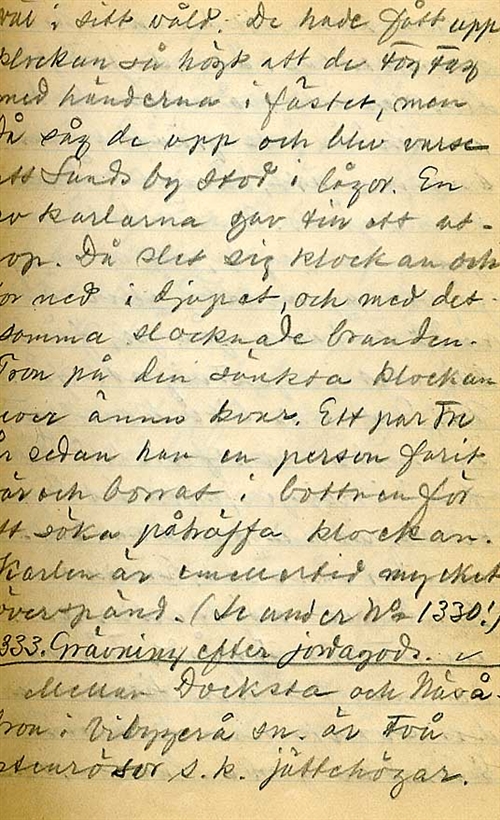 väl i sitt våld. De hade fått upp
klockan så högt att de tog tag
med händerna i fästet, men
då såg de upp och blev varse
att Sunds by stod i lågor. En
av karlarna gav till ett ut-
rop. Då slet sig klockan och
for ned i djupet, och med det-
somma slocknade branden.
Tron på den sänkta klockan
lever ännu kvar. Ett par tre
år sedan har en person farit
där och borrat i bottnen för
att söka påträffa klockan.
Karlen är emellertid mycket
överspänd. (Se under No 1330!)
1333. Grävning efter jordagods.
Mellan Docksta och Näså-
i Vibyggerå sn. är två
stenrösor s.k. jättehögar.